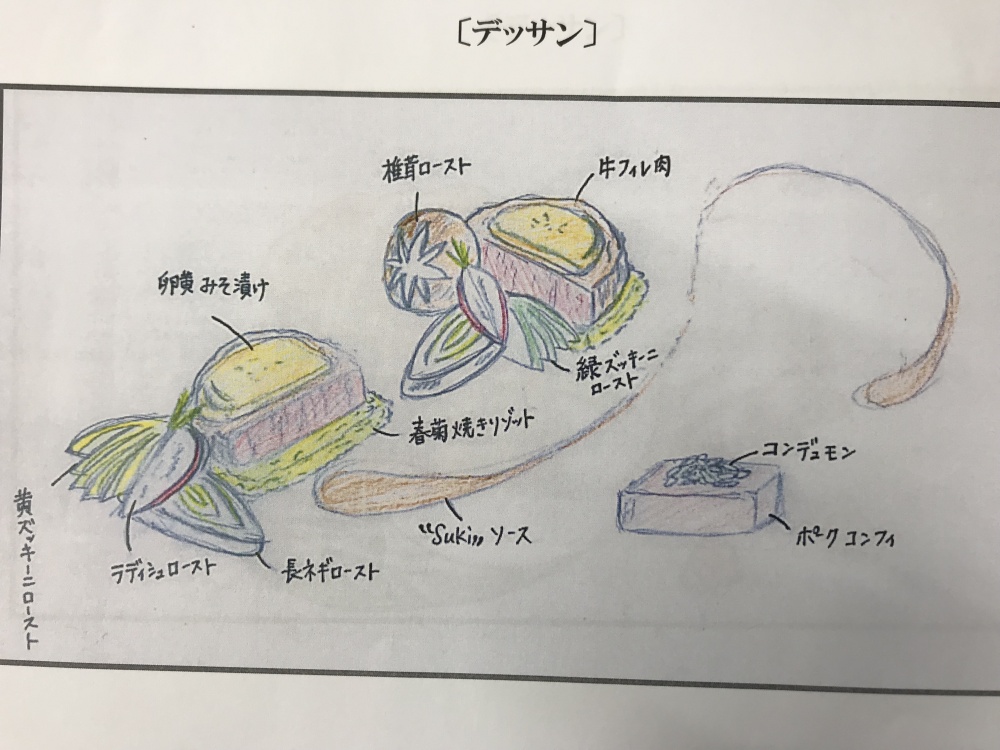 ［デッサン］
椎茸ロースト
牛フィレ肉
卵黄みそ漬け
緑ズッキーニ
ロースト
春菊焼きリゾット
コンデュモン
"Suki" ソース
ポークコンフィ
黄ズッキーニロースト
ラディシュロースト
長ネギロースト